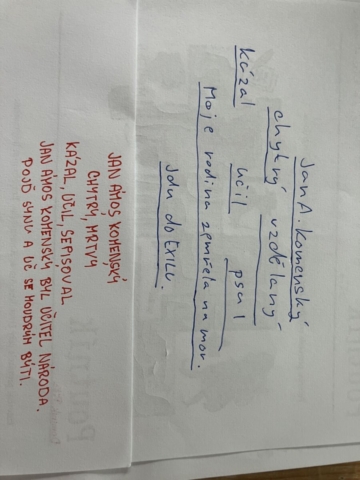 Jan A. Komenský
chytrý vzdělaný
kázal učil psal
Moje rodina zemřela na mor.
Jdu do EXILU.
JAN AMOS KOMENSKÝ
CHYTRÝ, MRTVÝ
KÁZAL, UČIL, SEPISOVAL
JAN AMOS KOMENSKÝ BYL UČITEL NÁRODA.
POJĎ SYNU A UČ SE MOUDRÝM BÝTI.